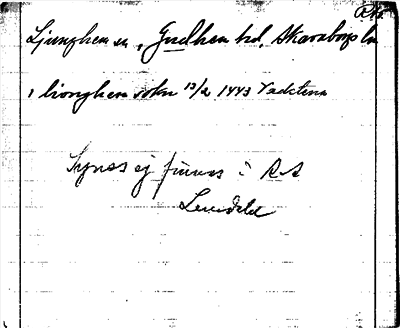 Ljunghem sn, Gudhem hd, Skaraborgs län
i lionghem sokn 13/2 1443 Vadstena
Synes ej finnas i RA